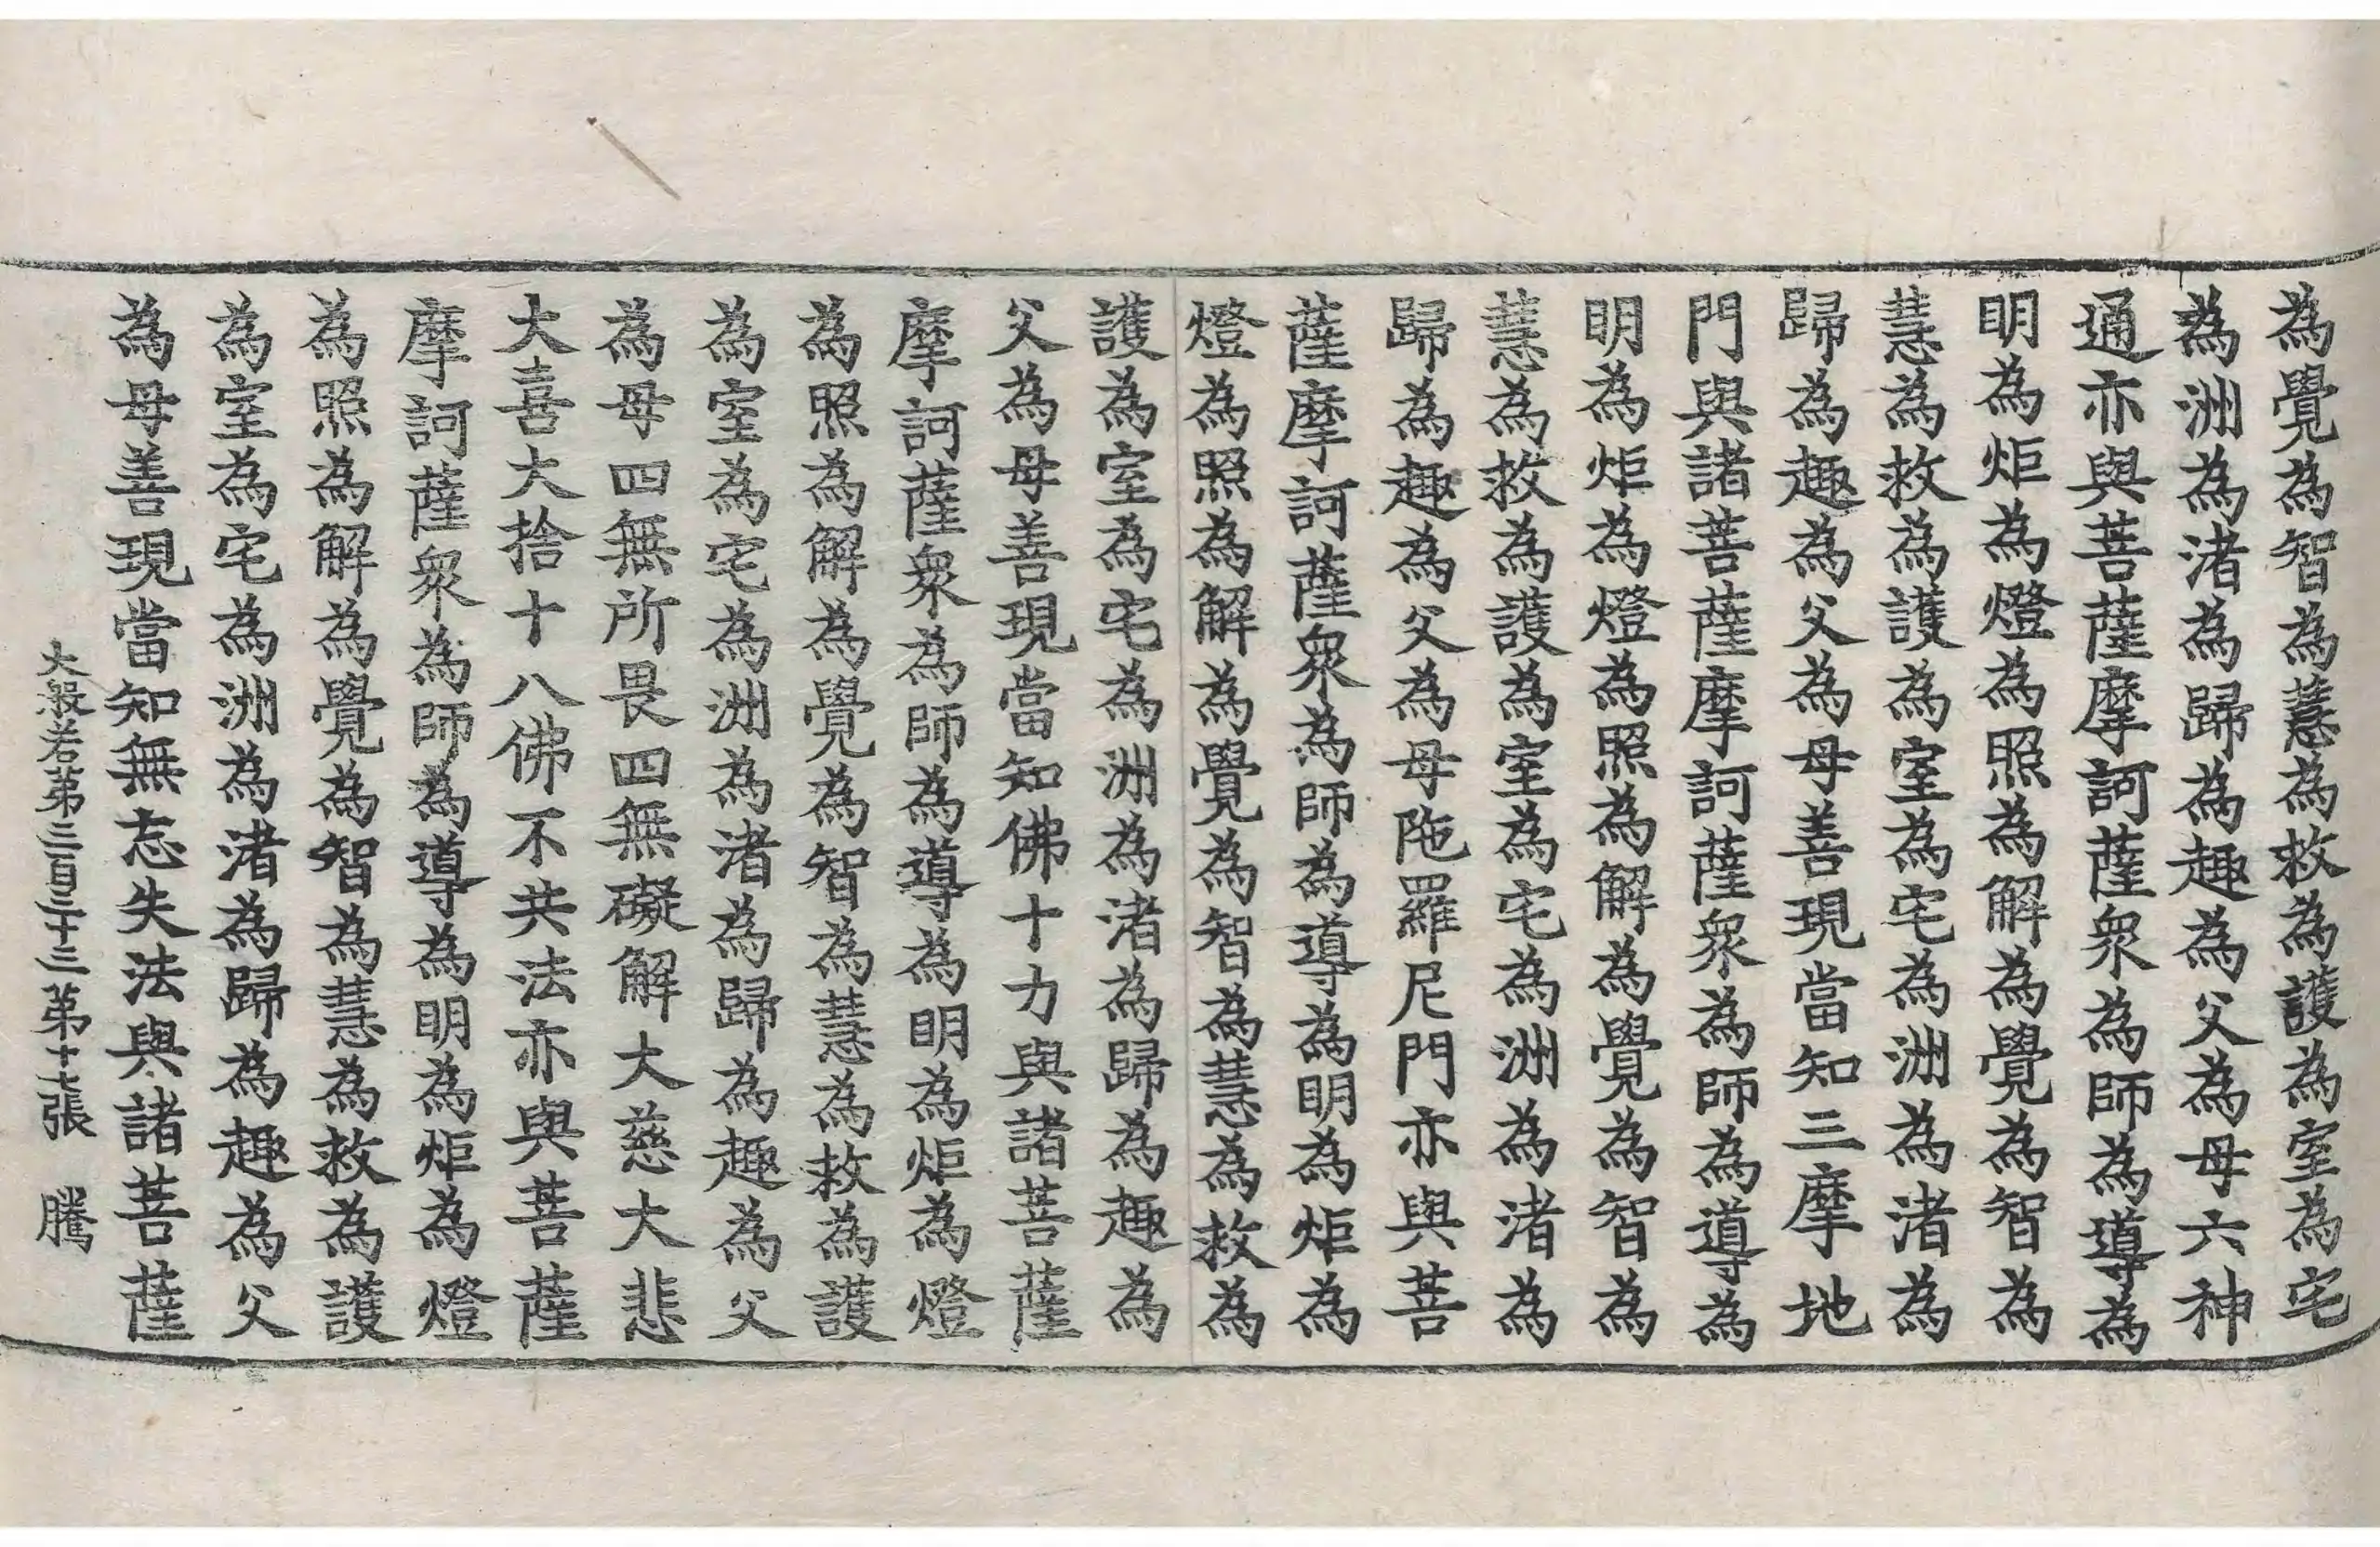 為覺為智為慧為救為護為室為宅
為洲為渚為歸為趣為父為母六神
通亦與菩薩摩訶薩衆為師為導為
明為炬為燈為照為解為覺為智為
慧為救為護為室為宅為洲為渚為
歸為趣為父為母善現當知三摩地
門與諸菩薩摩訶薩衆為師為導為
明為炬為燈為照為解為覺為智為
慧為救為護為室為宅為洲為渚為
歸為趣為父為母陁羅尼門亦與菩
薩摩訶薩衆為師為導為明為炬為
燈為照為解為覺為智為慧為救為
護為室為宅為洲為渚為歸為趣為
父為母善現當知佛十力與諸菩薩
摩訶薩衆為師為導為明為炬為燈
為照為解為覺為智為慧為救為護
為室為宅為洲為渚為歸為趣為父
為母四無所畏四無礙解大慈大悲
大喜大捨十八佛不共法亦與菩薩
摩訶薩衆為師為導為明為炬為燈
為照為解為覺為智為慧為救為護
為室為宅為洲為渚為歸為趣為父
為母善現當知無忘失法與諸菩薩
大般若第三百三十三 第十七張 騰